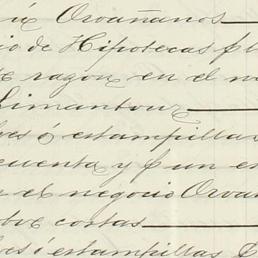 ú Ovañanos
io de Hipotecas p
razon en el n
Limantour
ves ó estampillas
cuenta y p un e
el negocio Ovañ
bre costas
ves ó estampillas